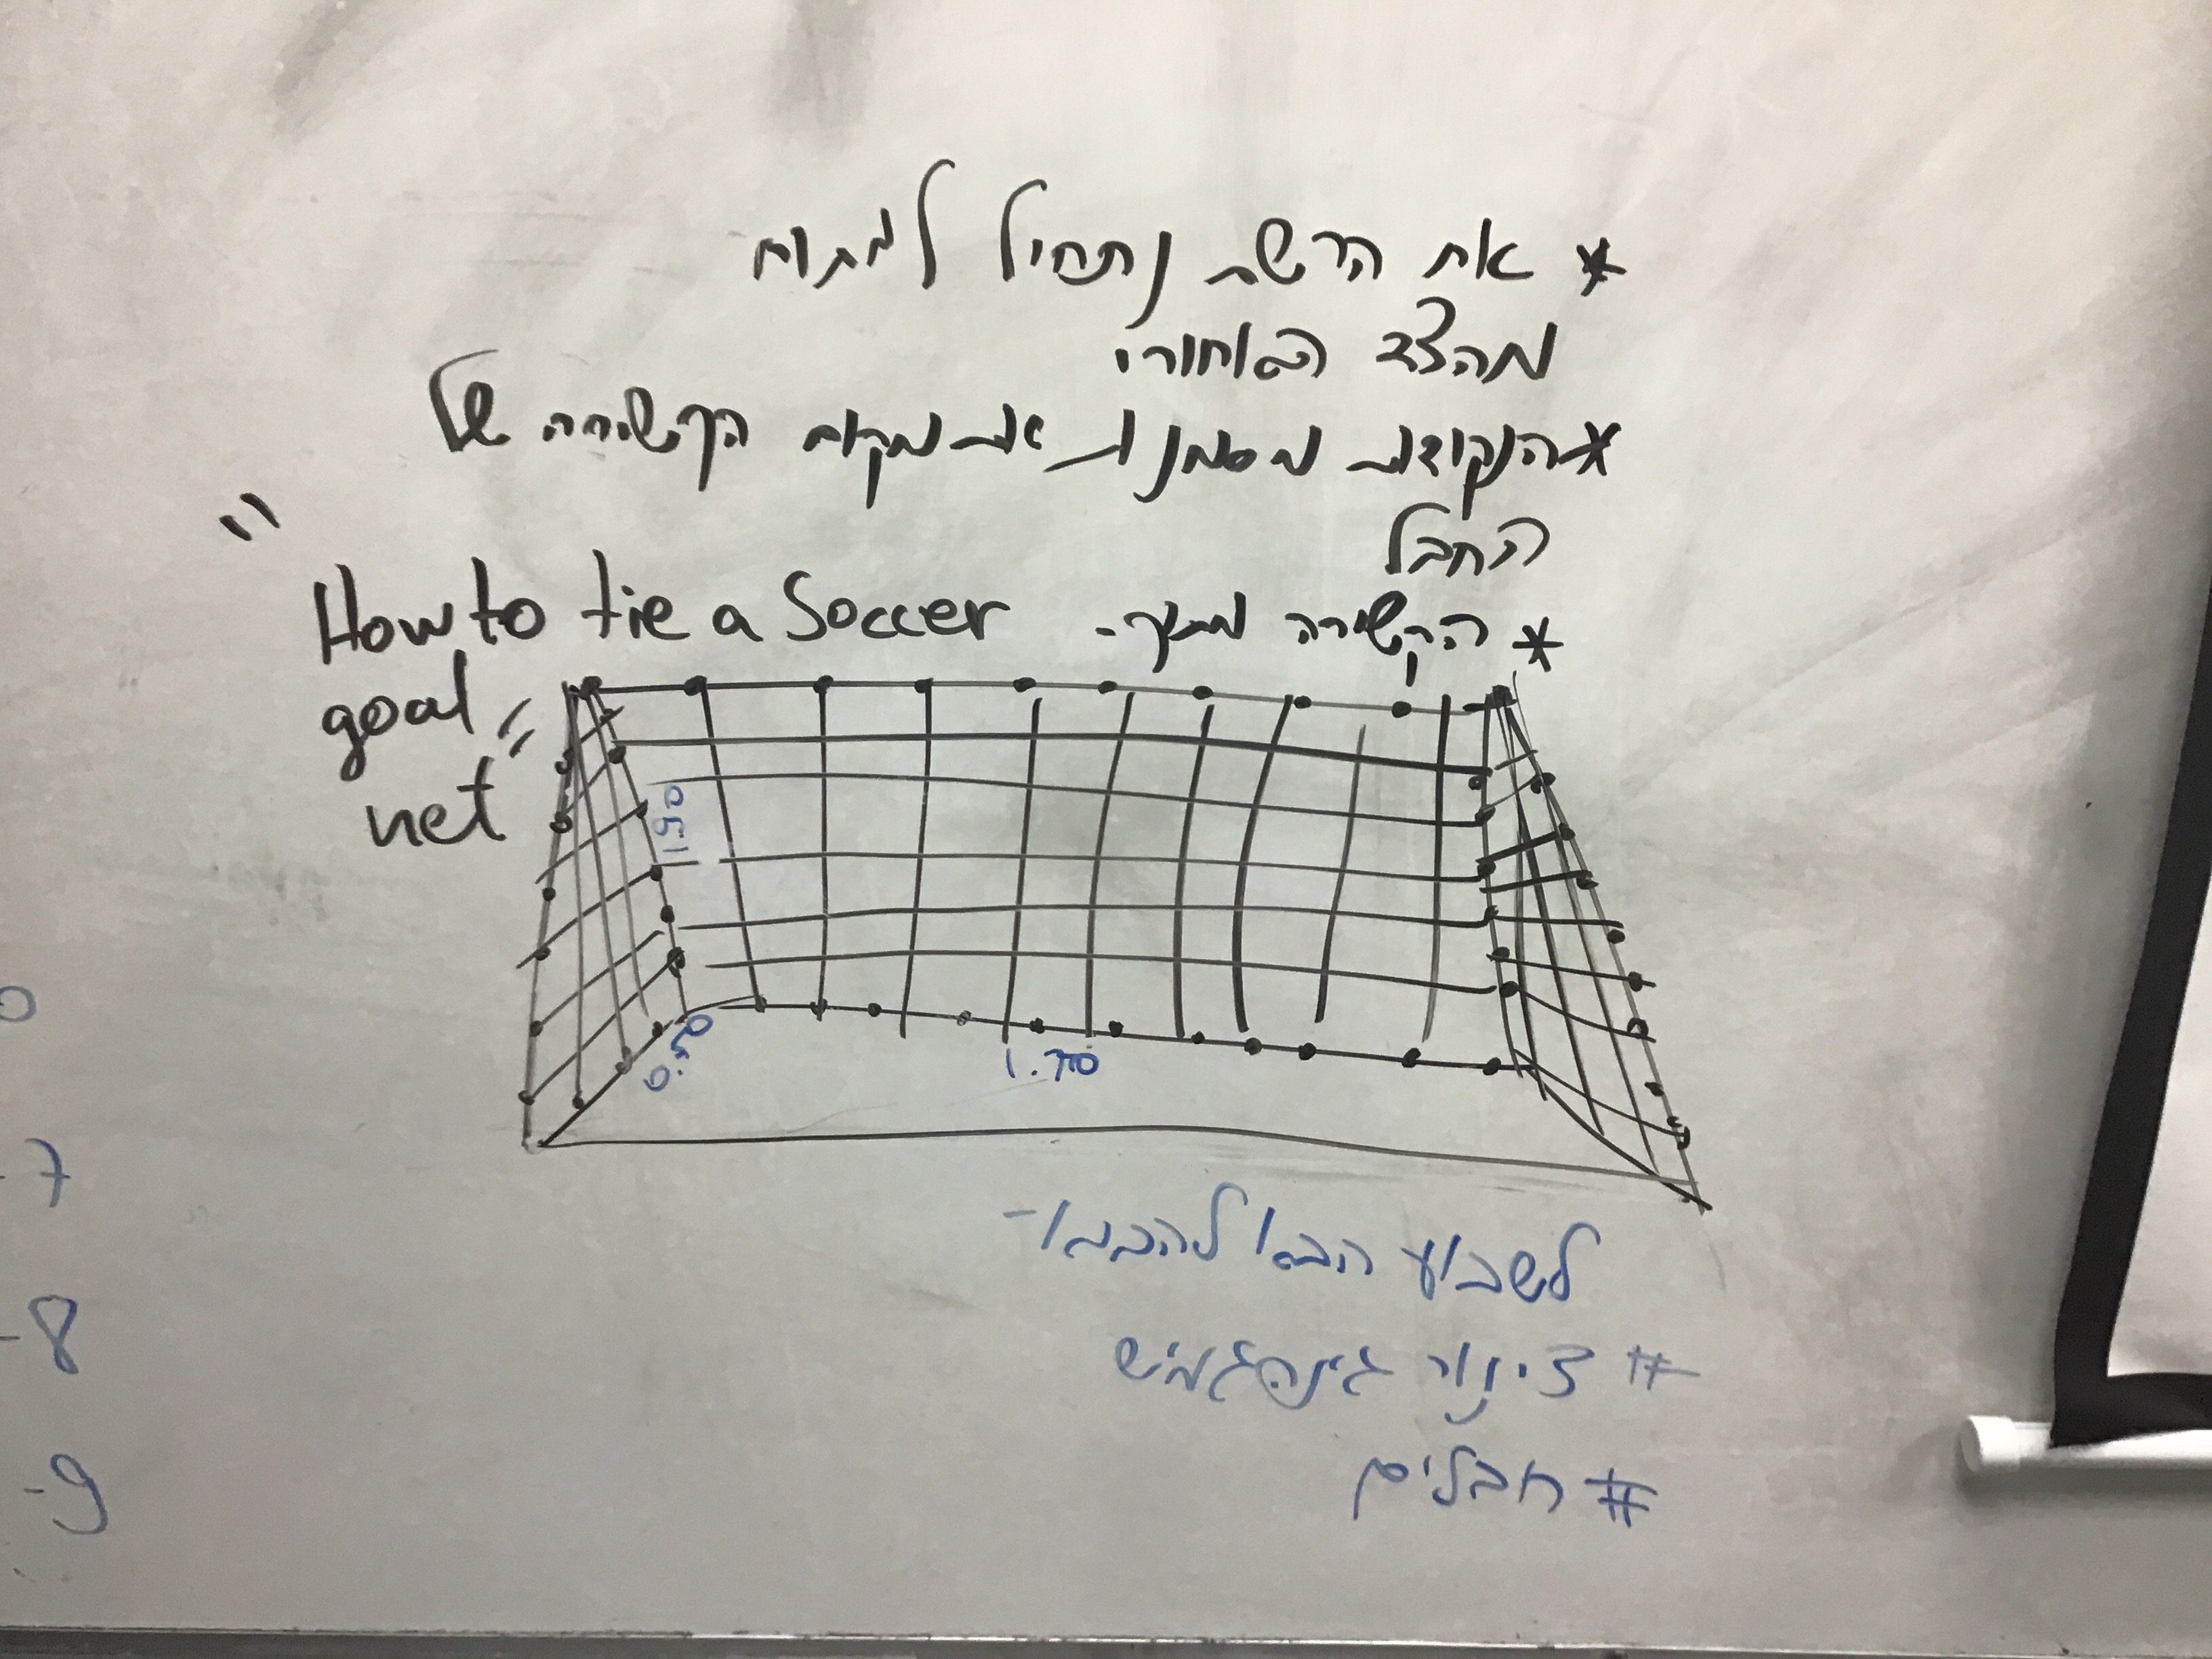 * את הרשת נתחיל למתוח
מהצד האחורי
* הנקודות מסמנות את מקום הקשירה של
החבל
* הקשירה מתוך - "How to tie a Soccer
goal
net"
1.90
0.50
1.70
לשבוע הבא להביא -
# צינור
# חבלים
0
-7
-8
-9